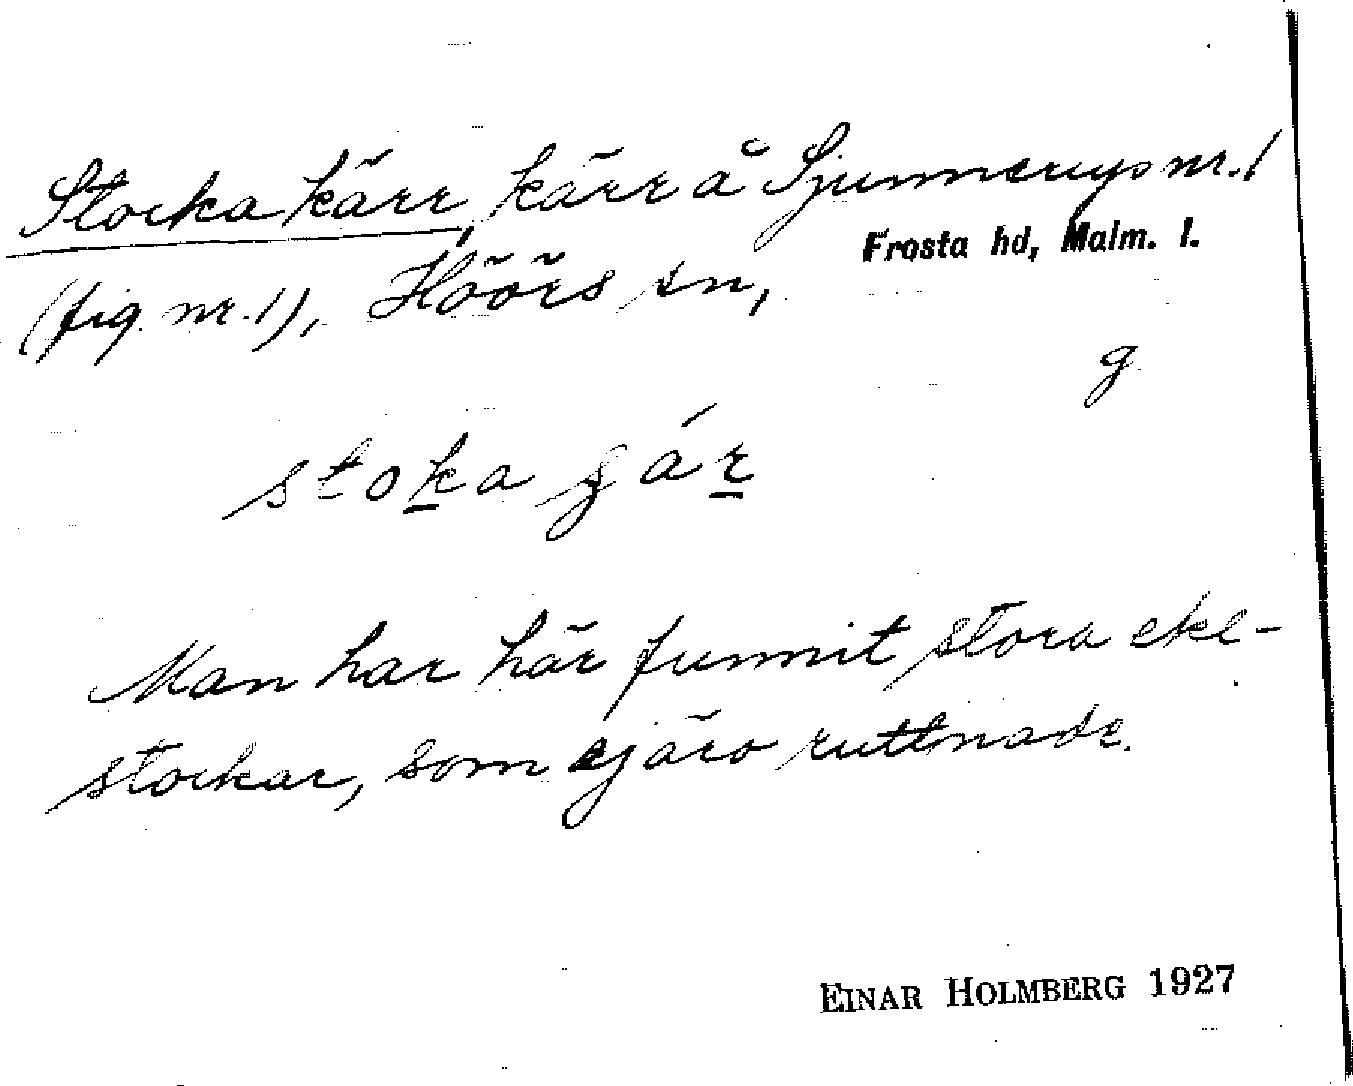 Stocka kärr, kärr å Sjunnerups nr. 1
(fig. nr. 1), Höörs sn, Frosta hd, Malm. l.
g
stoka gár
Man har här funnit stora eke-
stockar, som ej äro ruttnade.
EINAR HOLMBERG 1927